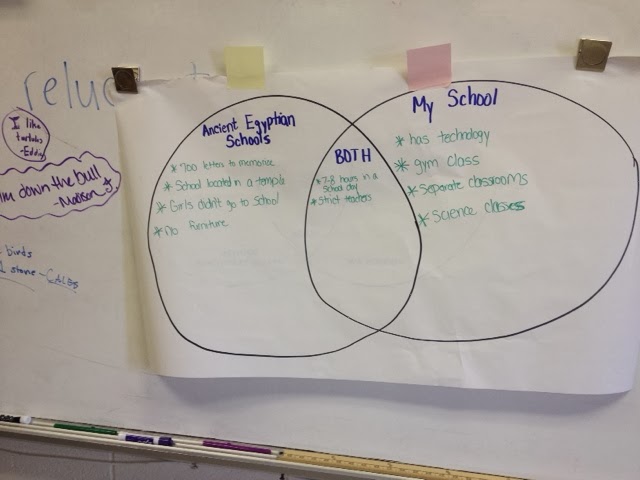 reluc
I like
turtles
-Eddie
down the bull
-Madison
birds
1 stone - Caleb
Ancient Egyptian
Schools
* 700 letters to memorize
* School located in a temple
* Girls didn't go to school
* No furniture
BOTH
* 7-8 hours in a
school day
* Strict teachers
My School
* has technology
* gym class
* Separate classrooms
* Science classes